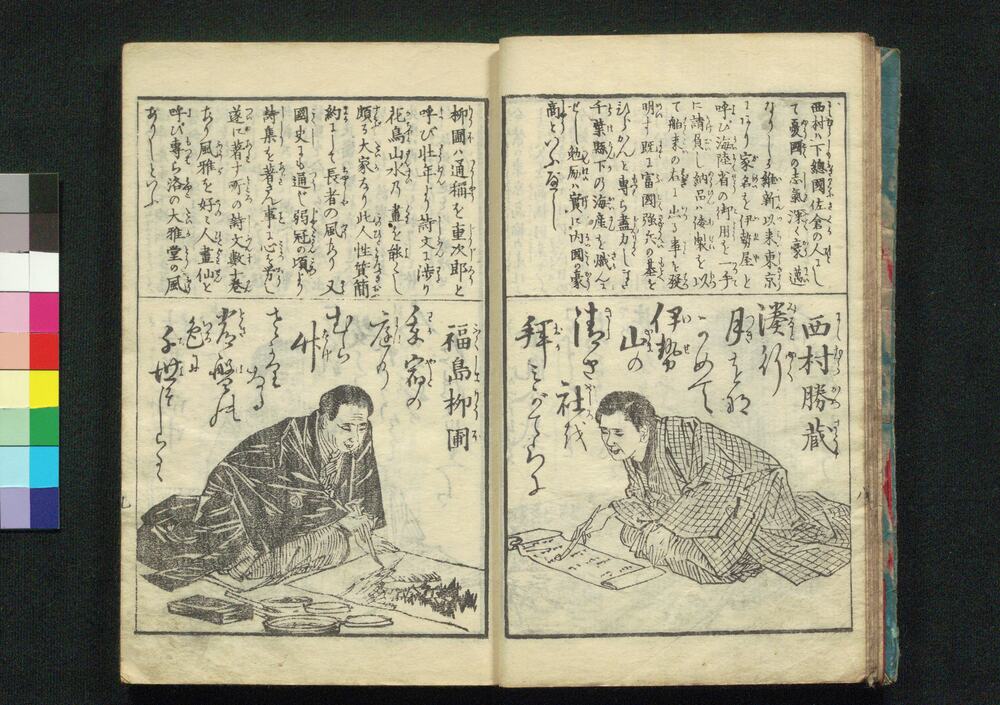 西村ハ下總國佐倉の人にし
て憂國の志氣深く豪邁
なりしが維新以来東京
にいり家名を伊勢屋と
呼び海陸省の御用を一手
に請負し納品傍製を以
て舶来の右に出る事を發
明す既に富國強兵の基を
ひらかんと専ら盡力しまた
千葉縣下の海産を減令
せし勉励ハ實に内國の豪
商といふべし
西村勝蔵
湊行
月をバ
ながめて
伊勢
山の
清き
社を
拝みがてらに
柳圃ハ通稱を重次郎と
呼び壮年より詩文に渉り
花鳥山水乃畫を能くし
頗る大家なり此人性質簡
約にして長者の風あり又
國史にも通じ弱冠の頃より
詩集を著さん事に心を労し
遂に著す所の詩文數十巻
あり風雅を好ミ人畫仙と
呼び専ら洛の大雅堂の風
ありしといふ
福島柳圃
我宿の
庭の
むら
竹
さかりなる
常盤の
色に
千世もしらるゝ